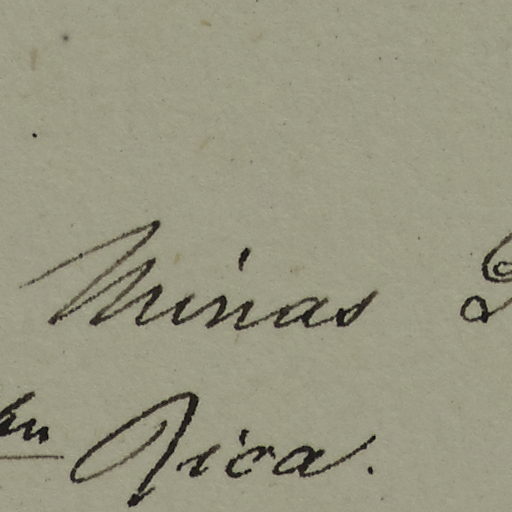 Minas
Rica.